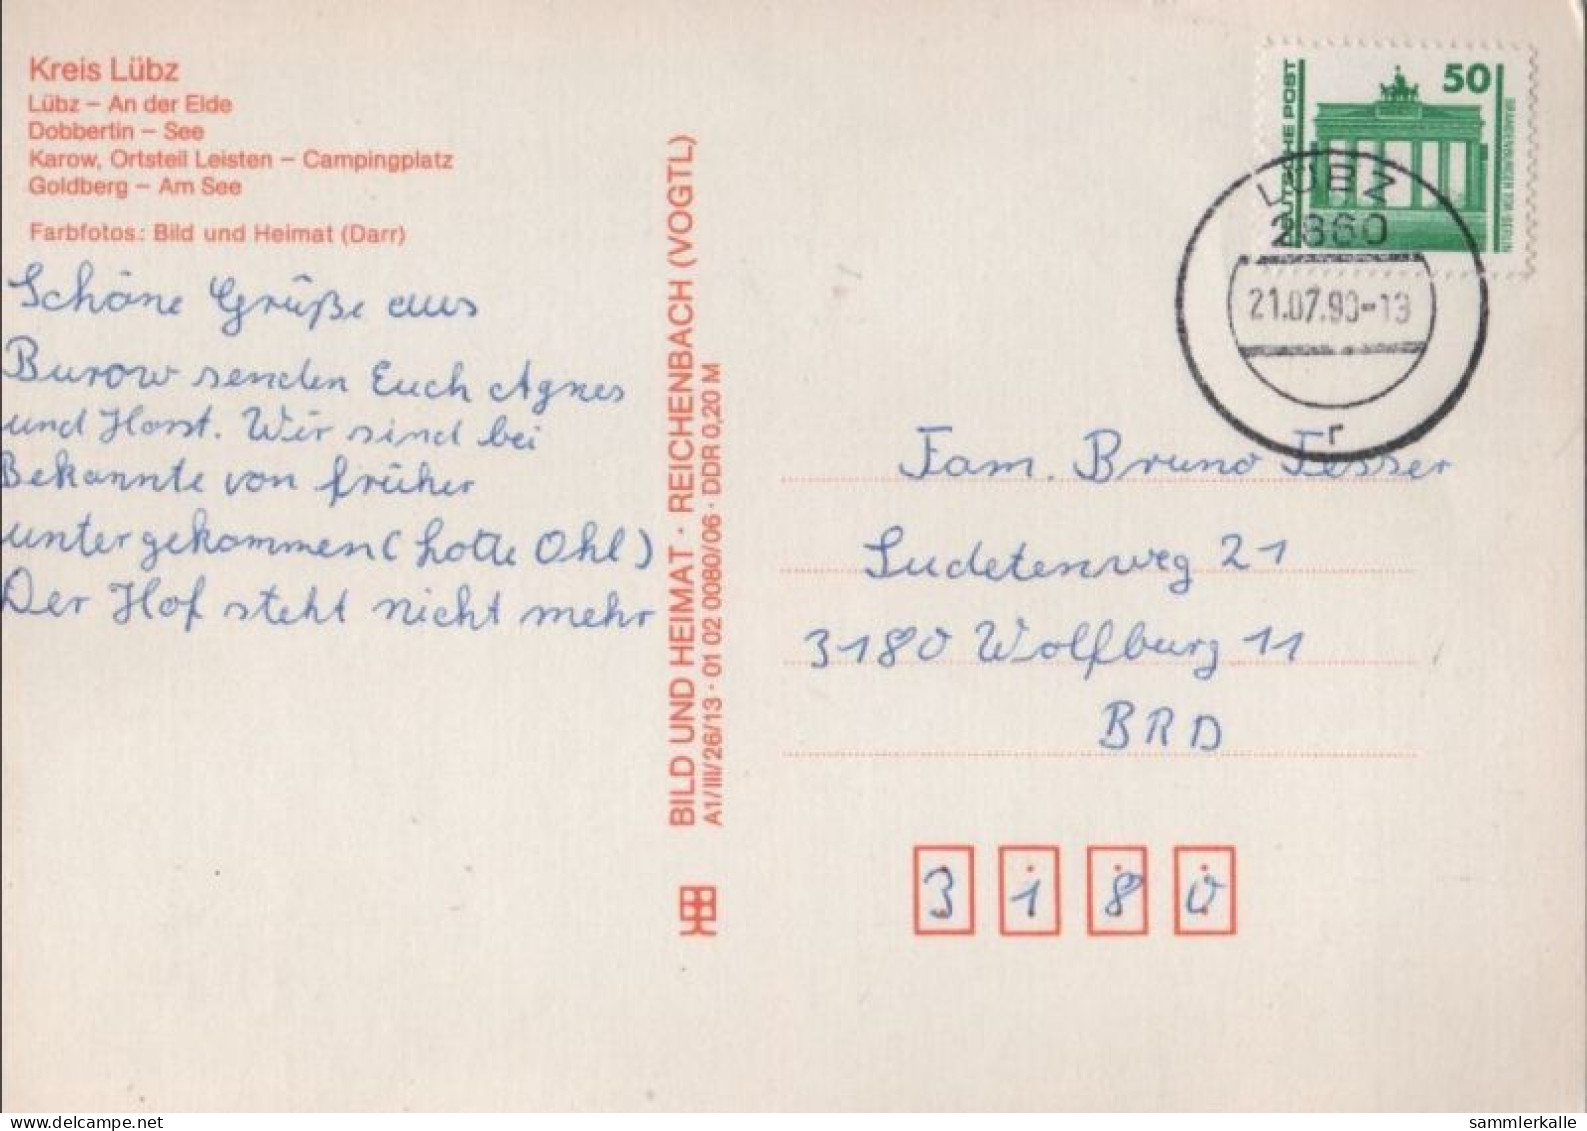 Kreis Lübz
Lübz – An der Elde
Dobbertin – See
Karow, Ortsteil Leisten – Campingplatz
Goldberg – Am See
Farbfotos: Bild und Heimat (Darr)
Schöne Grüße aus
Burow senden Euch Agnes
und Horst. Wir sind bei
Bekannte von früher
untergekommen (Lotte Ohl)
Der Hof steht nicht mehr
BILD UND HEIMAT · REICHENBACH (VOGTL)
A1/III/26/13 · 01 02 0080/06 · DDR 0,20 M
50
DEUTSCHE POST
BRANDENBURGER TOR · BERLIN
LÜBZ
2860
21.07.90-13
r
Fam. Bruno Fesser
Sudetenweg 21
3180 Wolfburg 11
BRD
3 1 8 0
www.delcampe.net
sammlerkalle